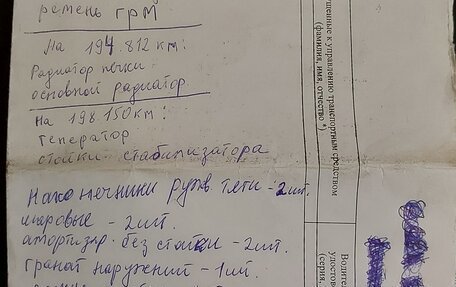 ремень ГРМ
На 194.812 км:
Радиатор печки
основной радиатор
На 198.150км:
Генератор
стойки стабилизатора
Наконечники рулев тяги - 2шт.
шаровые - 2шт.
амортизир. без стойки - 2шт.
гранат наружний - 1шт.
щенные к управлению транспортным средством
(фамилия, имя, отчество *)
Водител
удостове
(серия,